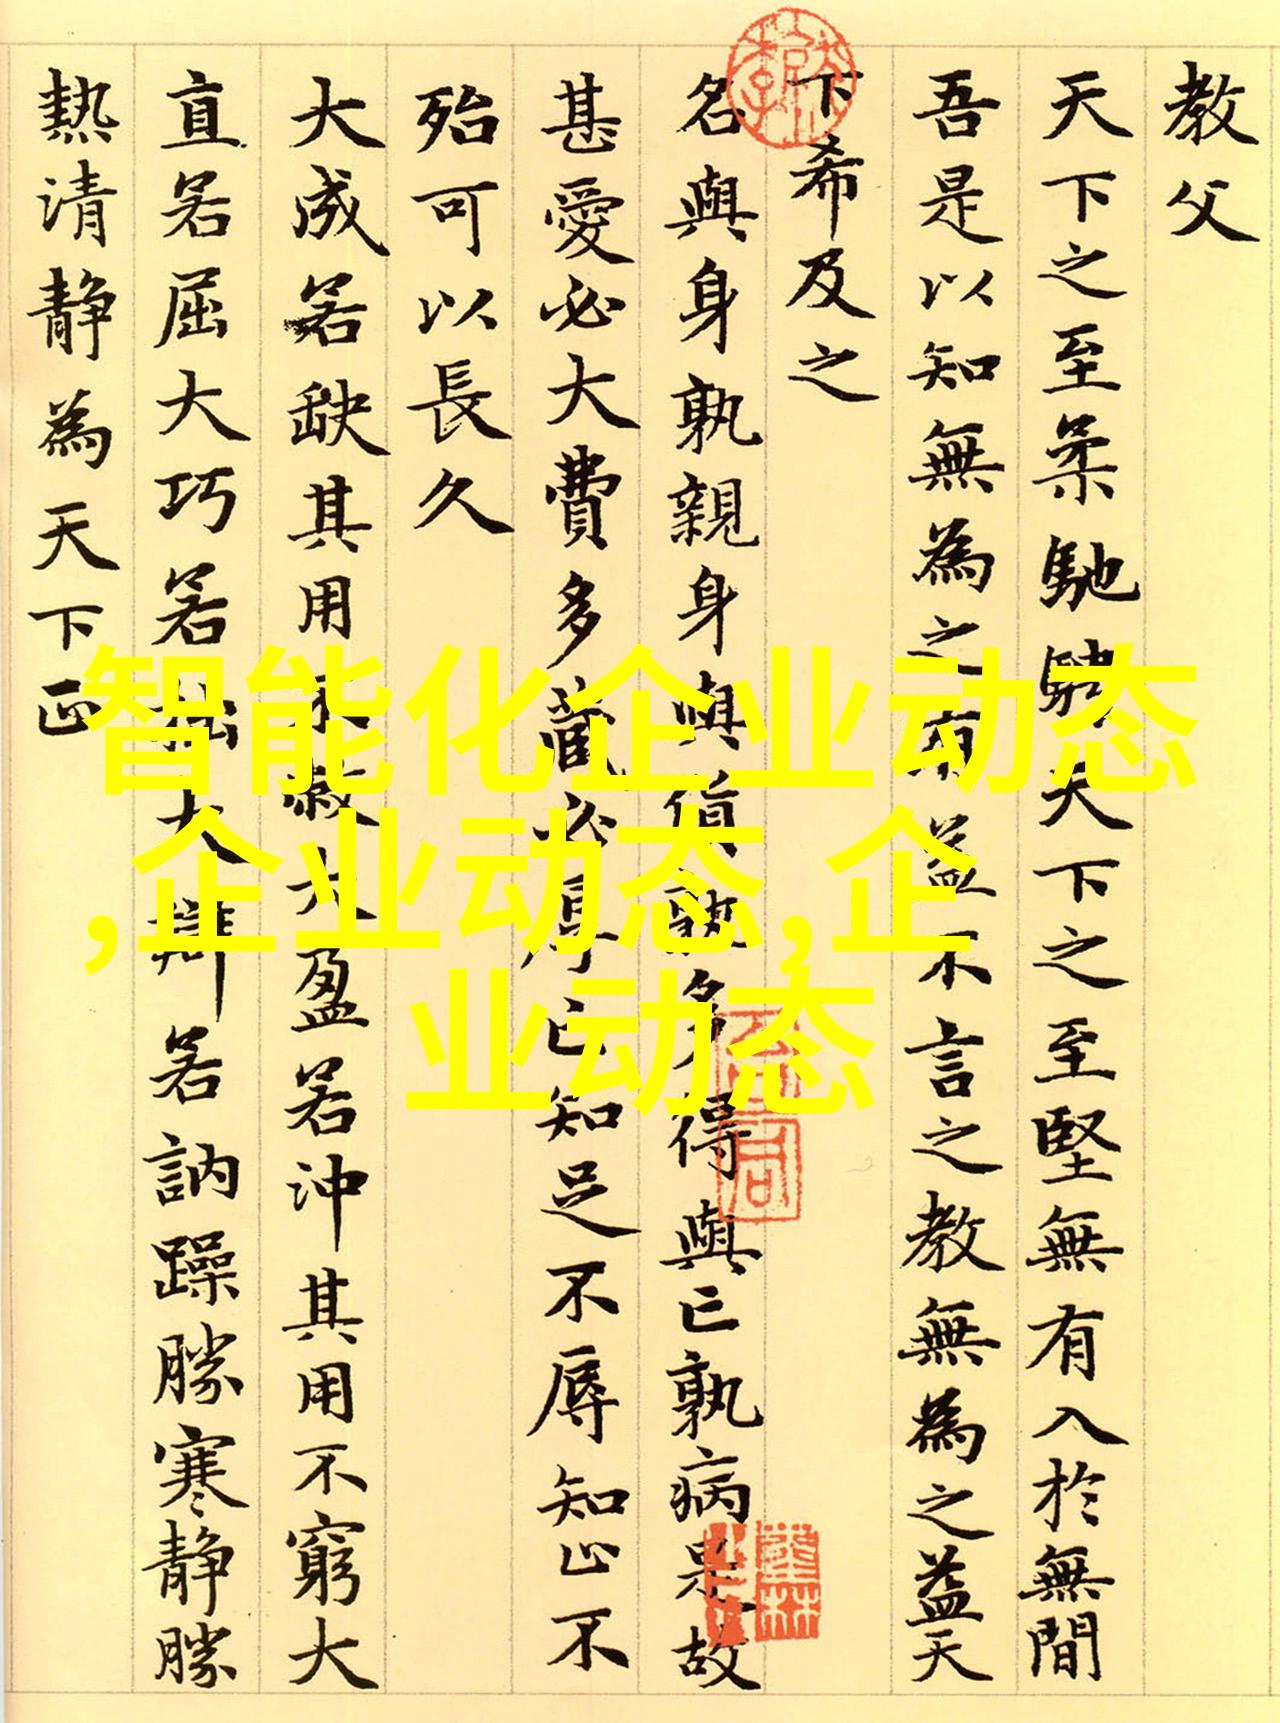 教父
天下之至柔馳騁天下之至堅無有入於無間
吾是以知無為之有益不言之教無為之益天
下希及之
名與身孰親身與貨孰多得與亡孰病是故
甚愛必大費多藏必厚亡知足不辱知止不
殆可以長久
大成若缺其用不敝大盈若沖其用不窮大
直若屈大巧若拙大辯若訥躁勝寒靜勝
熱清靜為天下正
智能化企业动态
,企业动态,企
业动态